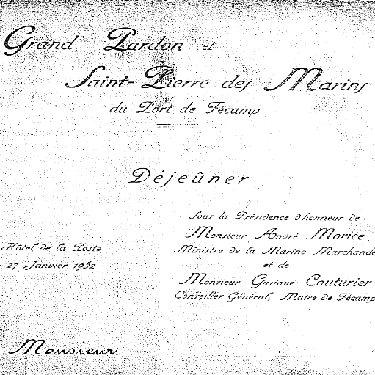 Grand Pardon et
Saint-Pierre des Marins
du Port de Fécamp
Déjeûner
Sous la Présidence d'honneur de
Monsieur André Morice
Ministre de la Marine Marchande
et de
Monsieur Couturier
Conseiller Général, Maire de Fécamp
Hôtel de la Poste
27 Janvier 1952
Monsieur